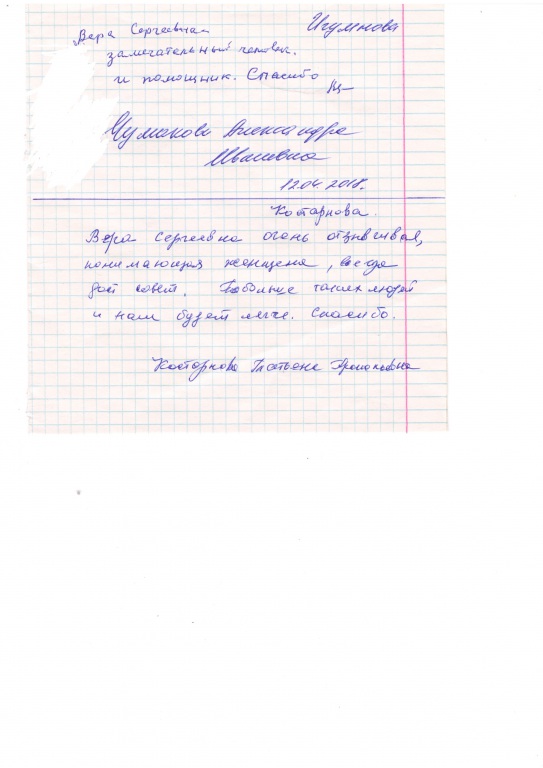 Вера Сергеевна Игумнова
замечательный человек.
и помощник. Спасибо
Чумакова Александра
Ивановна
12.04.2018г.
Костарнова.
Вера Сергеевна очень отзывчивая,
понимающая женщина, всегда
даст совет. Побольше таких людей
и нам будет легче. Спасибо.
Костарнова Татьяна